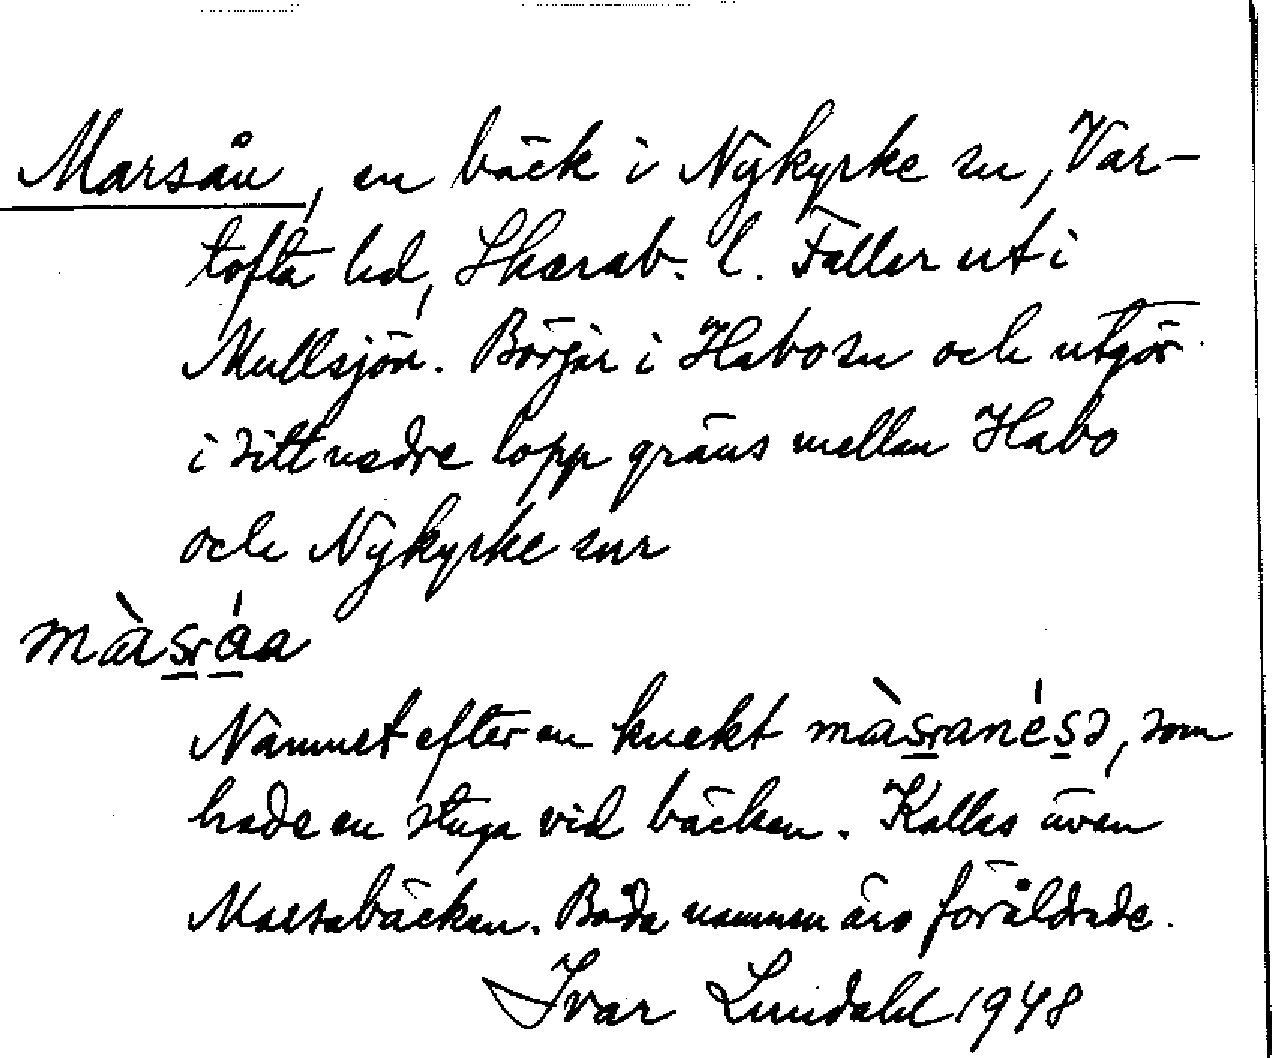 Marsån, en bäck i Nykyrke sn, Var-
tofta hd, Skarab. l. Faller ut i
Mullsjön. Börjar i Habo sn och utgör
i sitt nedre lopp gräns mellan Habo
och Nykyrke snr
Namnet efter en knekt som
hade en stuga vid bäcken. Kallas även
Marsabäcken. Båda namnen äro föråldrade.
Ivar Lundahl 1948